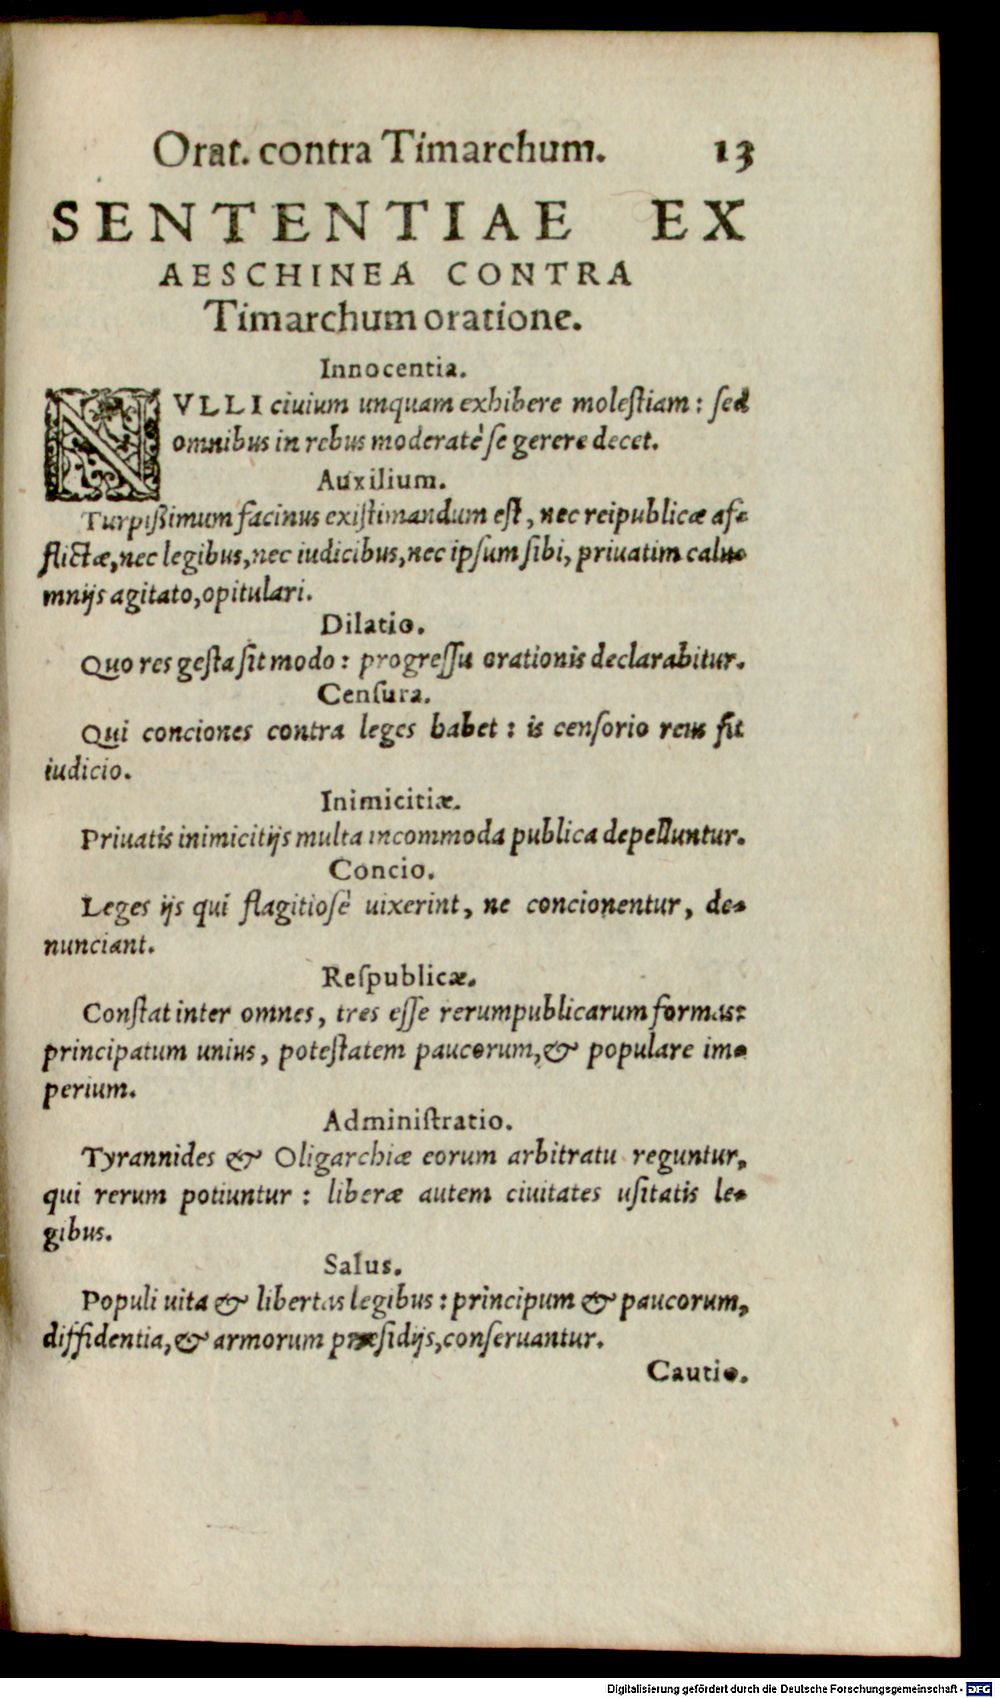 Orat. contra Timarchum. 13
SENTENTIAE EX
AESCHINEA CONTRA
Timarchum oratione.
Innocentia.
NVLLI ciuium unquam exhibere molestiam: sed
omnibus in rebus moderatè se gerere decet.
Auxilium.
Turpißimum facinus existimandum est, nec reipublicæ af-
flictæ, nec legibus, nec iudicibus, nec ipsum sibi, priuatim calu-
mnijs agitato, opitulari.
Dilatio.
Quo res gesta sit modo: progressu orationis declarabitur.
Censura.
Qui conciones contra leges habet: is censorio reus fit
iudicio.
Inimicitiæ.
Priuatis inimicitijs multa incommoda publica depelluntur.
Concio.
Leges ijs qui flagitiosè uixerint, ne concionentur, de-
nunciant.
Respublicæ.
Constat inter omnes, tres esse rerumpublicarum formas:
principatum unius, potestatem paucorum, & populare im-
perium.
Administratio.
Tyrannides & Oligarchiæ eorum arbitratu reguntur,
qui rerum potiuntur: liberæ autem ciuitates usitatis le-
gibus.
Salus.
Populi uita & libertas legibus: principum & paucorum,
diffidentia, & armorum præsidijs, conseruantur.
Cautio.
Digitalisierung gefördert durch die Deutsche Forschungsgemeinschaft - DFG